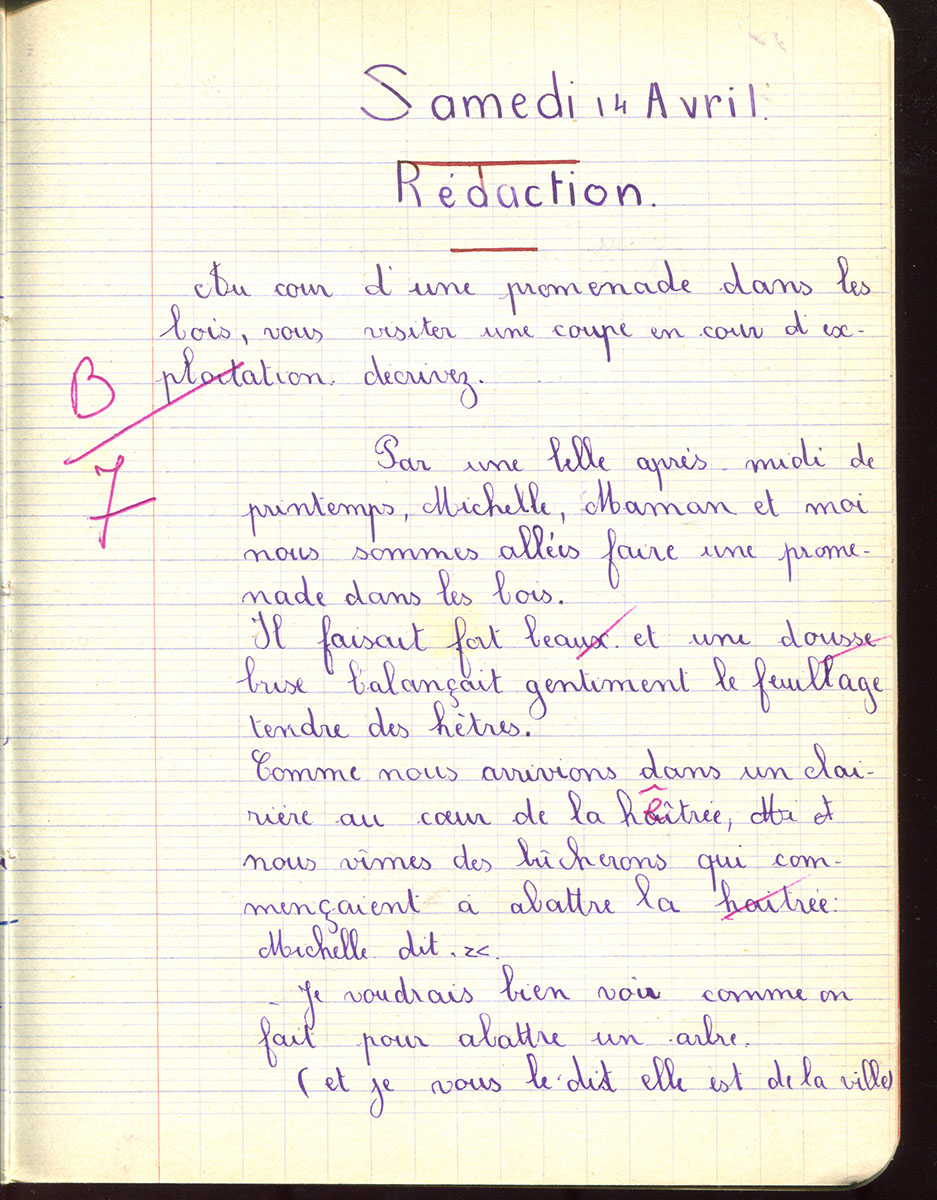 Samedi 14 Avril.
Rédaction.
Au cour d'une promenade dans les
bois, vous visiter une coupe en cour d'ex-
ploitation. décrivez.
B
7
Par une belle après-midi de
printemps, Michelle, Maman et moi
nous sommes allées faire une prome-
nade dans les bois.
Il faisait fort beaux. et une dousse
brise balançait gentiment le feuillage
tendre des hêtres.
Comme nous arrivions dans un clai-
rière au cœur de la hêtrée, Mi et
nous vîmes des bûcherons qui com-
mençaient à abattre la haitrée:
Michelle dit.
- Je voudrais bien voir comme on
fait pour abattre un arbre.
(et je vous le dit elle est de la ville)